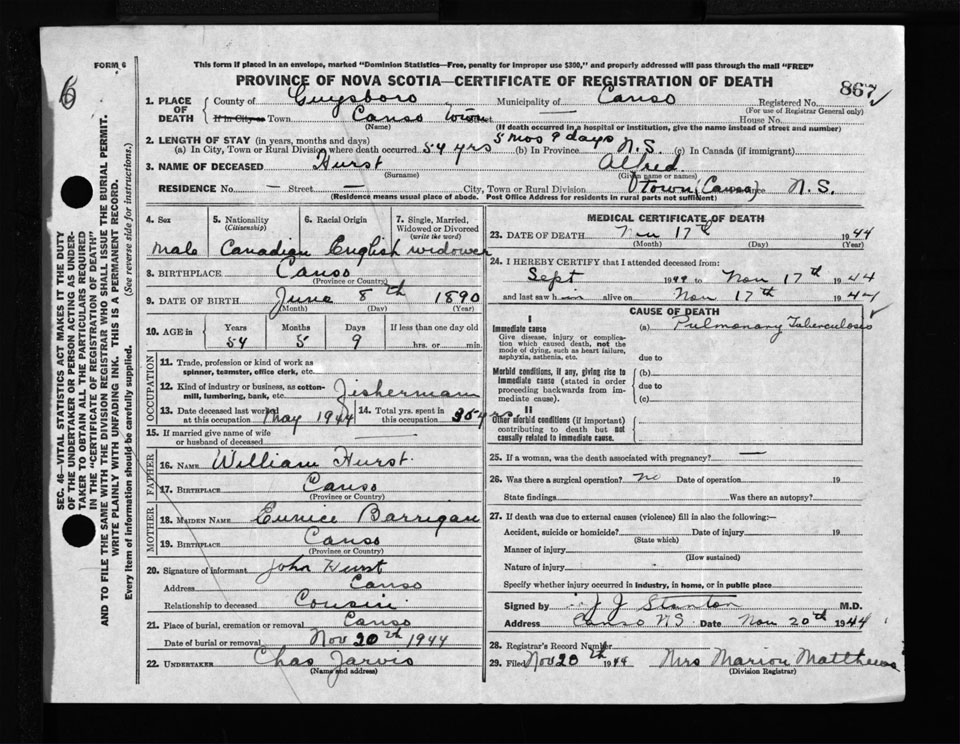 FORM 6
This form if placed in an envelope, marked "Dominion Statistics—Free, penalty for improper use $300," and properly addressed will pass through the mail "FREE"
6
PROVINCE OF NOVA SCOTIA—CERTIFICATE OF REGISTRATION OF DEATH
867
SEC. 46—VITAL STATISTICS ACT MAKES IT THE DUTY
OF THE UNDERTAKER OR PERSON ACTING AS UNDER-
TAKER TO OBTAIN ALL THE PARTICULARS REQUIRED
IN THE "CERTIFICATE OF REGISTRATION OF DEATH"
AND TO FILE THE SAME WITH THE DIVISION REGISTRAR WHO SHALL ISSUE THE BURIAL PERMIT.
WRITE PLAINLY WITH UNFADING INK. THIS IS A PERMANENT RECORD.
Every item of information should be carefully supplied. (See reverse side for instructions.)
1. PLACE OF DEATH { County of Guysboro Municipality of Canso Registered No.
(For use of Registrar General only)
If in City or Town Canso Town Street — House No.
(Name) (If death occurred in a hospital or institution, give the name instead of street and number)
2. LENGTH OF STAY (in years, months and days) 5 mos 9 days
(a) In City, Town or Rural Division where death occurred 54 yrs (b) In Province N.S. (c) In Canada (if immigrant)
3. NAME OF DECEASED Hurst Alfred
(Surname) (Given name or names)
RESIDENCE No. — Street — City, Town or Rural Division Town (Canso) Province N.S.
(Residence means usual place of abode. Post Office Address for residents in rural parts not sufficient)
4. Sex 5. Nationality 6. Racial Origin 7. Single, Married,
(Citizenship) Widowed or Divorced
(write the word)
male Canadian English widower
8. BIRTHPLACE Canso
(Province or Country)
9. DATE OF BIRTH June 8th 1890
(Month) (Day) (Year)
10. AGE in Years Months Days If less than one day old
54 5 9 hrs. or min.
OCCUPATION
11. Trade, profession or kind of work as
spinner, teamster, office clerk, etc.
12. Kind of industry or business, as cotton-
mill, lumbering, bank, etc. Fisherman
13. Date deceased last worked at this occupation May 1944 14. Total yrs. spent in this occupation 35 yrs
15. If married give name of wife
or husband of deceased —
FATHER
16. NAME William Hurst.
17. BIRTHPLACE Canso
(Province or Country)
MOTHER
18. MAIDEN NAME Eunice Barrigan
19. BIRTHPLACE Canso
(Province or Country)
20. Signature of informant John Hurst
Address Canso
Relationship to deceased Cousin
21. Place of burial, cremation or removal Canso
Date of burial or removal Nov 20th 1944
22. UNDERTAKER Chas Jarvis
(Name and address)
MEDICAL CERTIFICATE OF DEATH
23. DATE OF DEATH Nov 17th 1944
(Month) (Day) (Year)
24. I HEREBY CERTIFY that I attended deceased from:
Sept 1944 to Nov 17th 1944
and last saw him alive on Nov 17th 1944
CAUSE OF DEATH
I
Immediate cause (a) Pulmonary Tuberculosis
Give disease, injury or complica-
tion which caused death, not the
mode of dying, such as heart failure,
asphyxia, asthenia, etc. due to
Morbid conditions, if any, giving rise to (b)
immediate cause (stated in order due to
proceeding backwards from im-
mediate cause). (c)
II
Other morbid conditions (if important)
contributing to death but not
causally related to immediate cause.
25. If a woman, was the death associated with pregnancy? —
26. Was there a surgical operation? no Date of operation 19
State findings Was there an autopsy?
27. If death was due to external causes (violence) fill in also the following:—
Accident, suicide or homicide? Date of injury 19
(State which)
Manner of injury
(How sustained)
Nature of injury
Specify whether injury occurred in industry, in home, or in public place
Signed by J J Stanton M.D.
Address Canso N.S. Date Nov 20th 1944
28. Registrar's Record Number
29. Filed Nov 20th 1944 Mrs Marion Matthews
(Division Registrar)